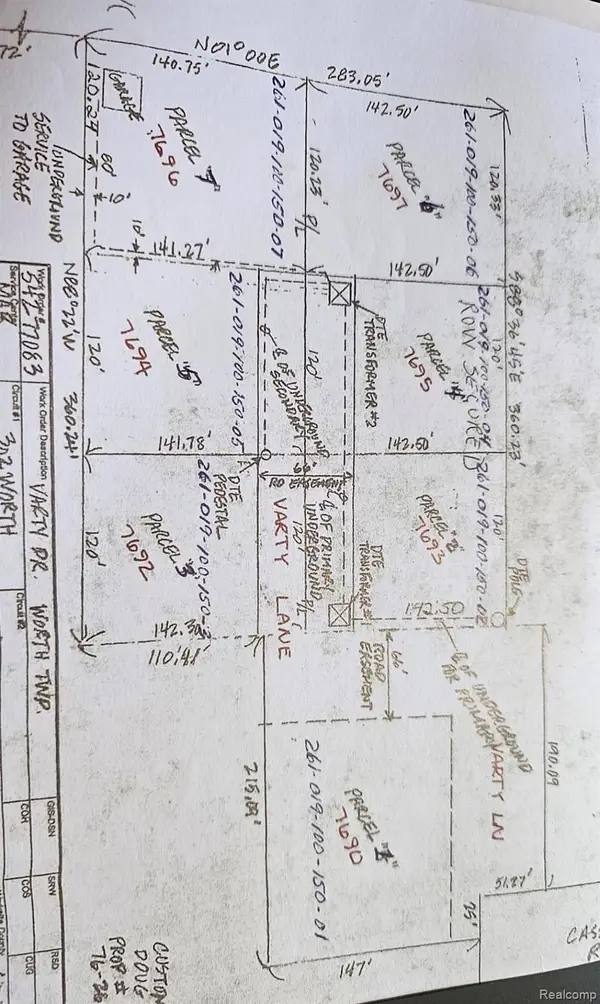 72'
N01°00'E
140.75'
283.05'
142.50'
GARAGE
120.24
60'
10'
10'
UNDERGROUND
SERVICE
TO GARAGE
PARCEL "7"
7696
261-019-100-150-07
120.23' P/L
PARCEL "6"
7697
261-019-100-150-06
120.33'
S88°36'45"E 360.23'
141.27'
142.50'
N88°22'W 360.24'
120'
PARCEL "5"
7694
261-019-100-150-05
℄ OF UNDERGROUND
SECONDARY
120'
DTE
TRANSFORMER #2
PARCEL "4"
7695
261-019-100-150-04
ROW SECURED
120'
141.78'
142.50'
DTE
PEDESTAL
RD EASEMENT
120'
PARCEL "3"
7692
261-019-100-150-3
VARTY LANE
℄ OF PRIMARY
UNDERGROUND
120' P/L
DTE
TRANSFORMER #1
PARCEL "2"
7693
261-019-100-150-02
120'
DTE
POLE
142.50
142.35'
110.41'
66'
ROAD
EASEMENT
℄ OF UNDERGROUND
AIR PRIMARY
VARTY LN
190.09
215.09'
261-019-100-150-01
PARCEL "1"
7690
51.27'
25'
147'
CASS
Work Order Description
VARTY DR. WORTH TWP.
Circuit #1
312 WORTH
Circuit #2
GIS-DSN
SRW
RSD
COH
COS
CUG
DOUG
PROP #
Realcomp